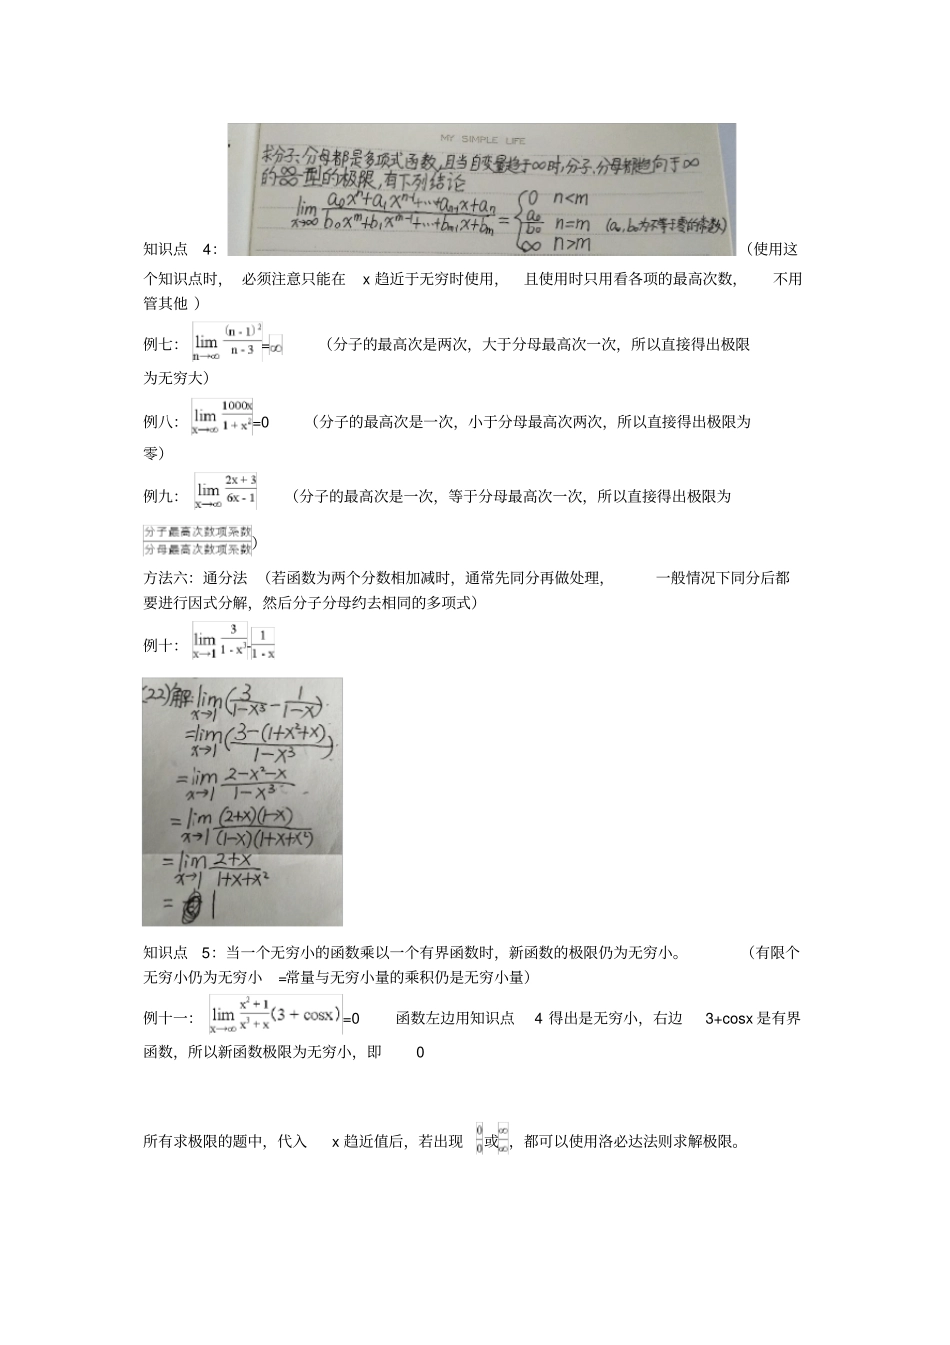 MY SIMPLE LIFE
求分子、分母都是多项式函数,且当自变量趋于∞时,分子、分母都趋向于∞
的∞/∞型的极限,有下列结论
lim x→∞ (a₀xⁿ+a₁xⁿ⁻¹+…+aₙ₋₁x+aₙ)/(b₀xᵐ+b₁xᵐ⁻¹+…+bₘ₋₁x+bₘ) = { 0 n<m
a₀/b₀ n=m (a₀,b₀为不等于零的常数)
∞ n>m
知识点 4: (使用这
个知识点时, 必须注意只能在 x 趋近于无穷时使用, 且使用时只用看各项的最高次数, 不用
管其他 )
例七: lim n→∞ (n-1)²/(n-3) =∞ (分子的最高次是两次, 大于分母最高次一次, 所以直接得出极限
为无穷大)
例八: lim x→∞ 1000x/(1+x²) =0 (分子的最高次是一次, 小于分母最高次两次, 所以直接得出极限为
零)
例九: lim x→∞ (2x+3)/(6x-1) (分子的最高次是一次, 等于分母最高次一次, 所以直接得出极限为
分子最高次数项系数/分母最高次数项系数)
方法六: 通分法 (若函数为两个分数相加减时, 通常先同分再做处理, 一般情况下同分后都
要进行因式分解, 然后分子分母约去相同的多项式)
例十: lim x→1 3/(1-x³) - 1/(1-x)
(22)解: lim x→1 (3/(1-x³) - 1/(1-x)).
=lim x→1 ((3-(1+x²+x))/(1-x³)).
=lim x→1 (2-x²-x)/(1-x³).
=lim x→1 (2+x)(1-x)/((1-x)(1+x+x²))
=lim x→1 (2+x)/(1+x+x²)
= 1
知识点 5: 当一个无穷小的函数乘以一个有界函数时, 新函数的极限仍为无穷小。 (有限个
无穷小仍为无穷小 =常量与无穷小量的乘积仍是无穷小量)
例十一: lim x→∞ (x²+1)/(x³+x) (3+cosx) =0 函数左边用知识点 4 得出是无穷小, 右边 3+cosx 是有界
函数, 所以新函数极限为无穷小, 即 0
所有求极限的题中, 代入 x 趋近值后, 若出现 0/0 或 ∞/∞, 都可以使用洛必达法则求解极限。